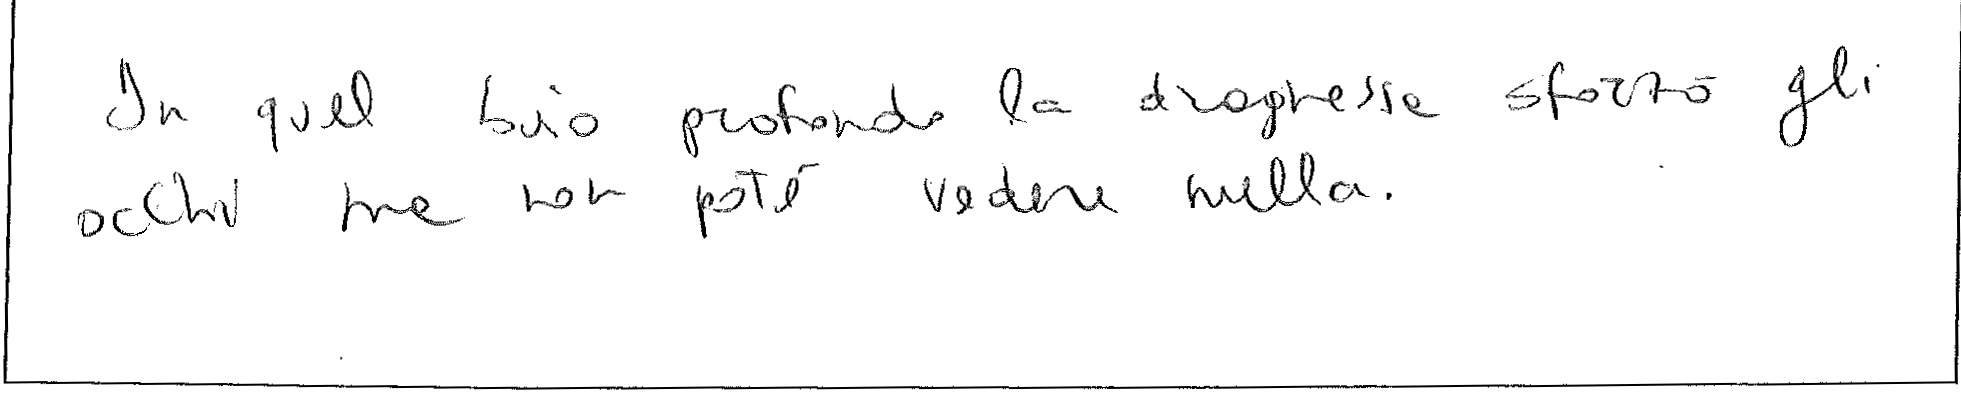 In quel buio profondo la dragnessa sforzò gli
occhi ma non poté vedere nulla.